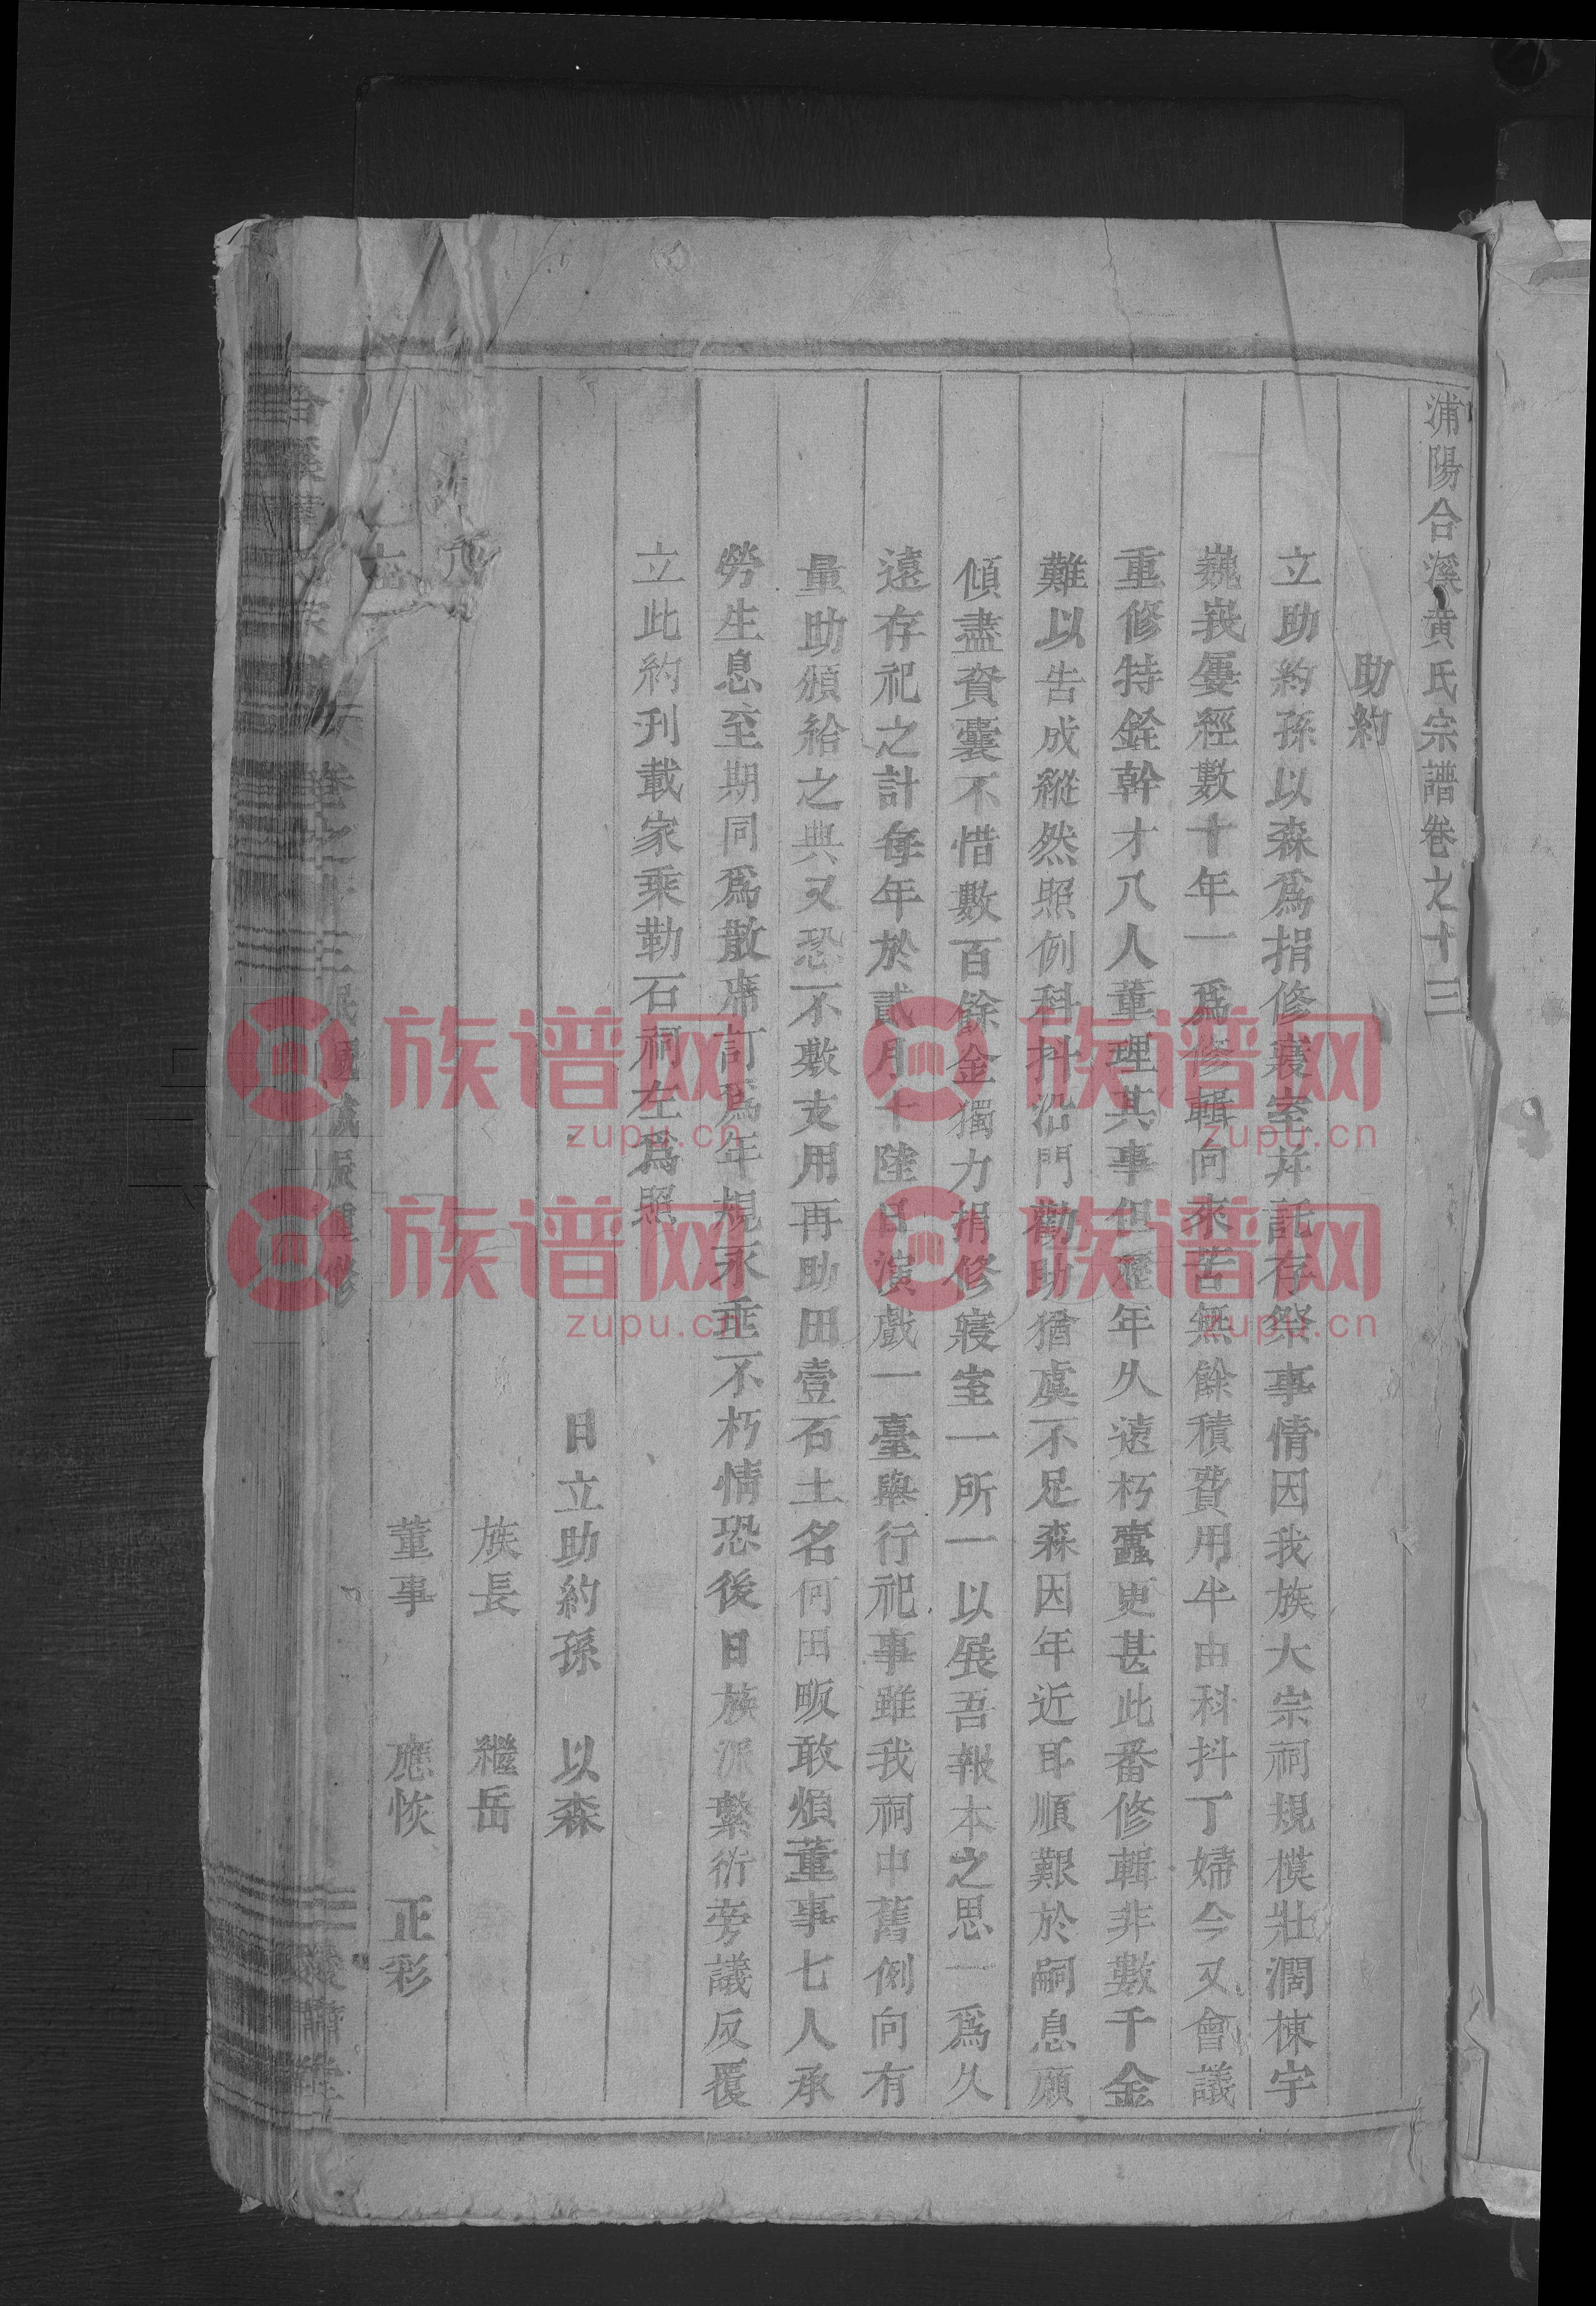 浦陽合溪黄氏宗譜卷之十三
助約
立助約孫以森爲捐修寢室并託存祭事情因我族大宗祠規模壯濶棟宇
巍峩屢經數十年一爲修輯向來苦無餘積費用半由科抖丁婦今又會議
重修特銓幹才八人董理其事但歷年久遠朽蠹更甚此番修輯非數千金
難以告成縱然照例科抖沿門勸助猶虞不足森因年近耳順艱於嗣息願
傾盡資囊不惜數百餘金獨力捐修寢室一所一以展吾報本之思一爲久
遠存祀之計每年於貳月十陸日演戲一臺舉行祀事雖我祠中舊例向有
量助頒給之典又恐不敷支用再助田壹石土名何田畈敢煩董事七人承
勞生息至期同爲散席訂爲年規永垂不朽情恐後日族派繁衍旁議反覆
立此約刋載家乘勒石祠左爲照
日立助約孫 以森
族長 繼岳
董事 應恢 正彩
民國 歲 重修
族谱网
zupu.cn
族谱网
zupu.cn
族谱网
zupu.cn
族谱网
zupu.cn